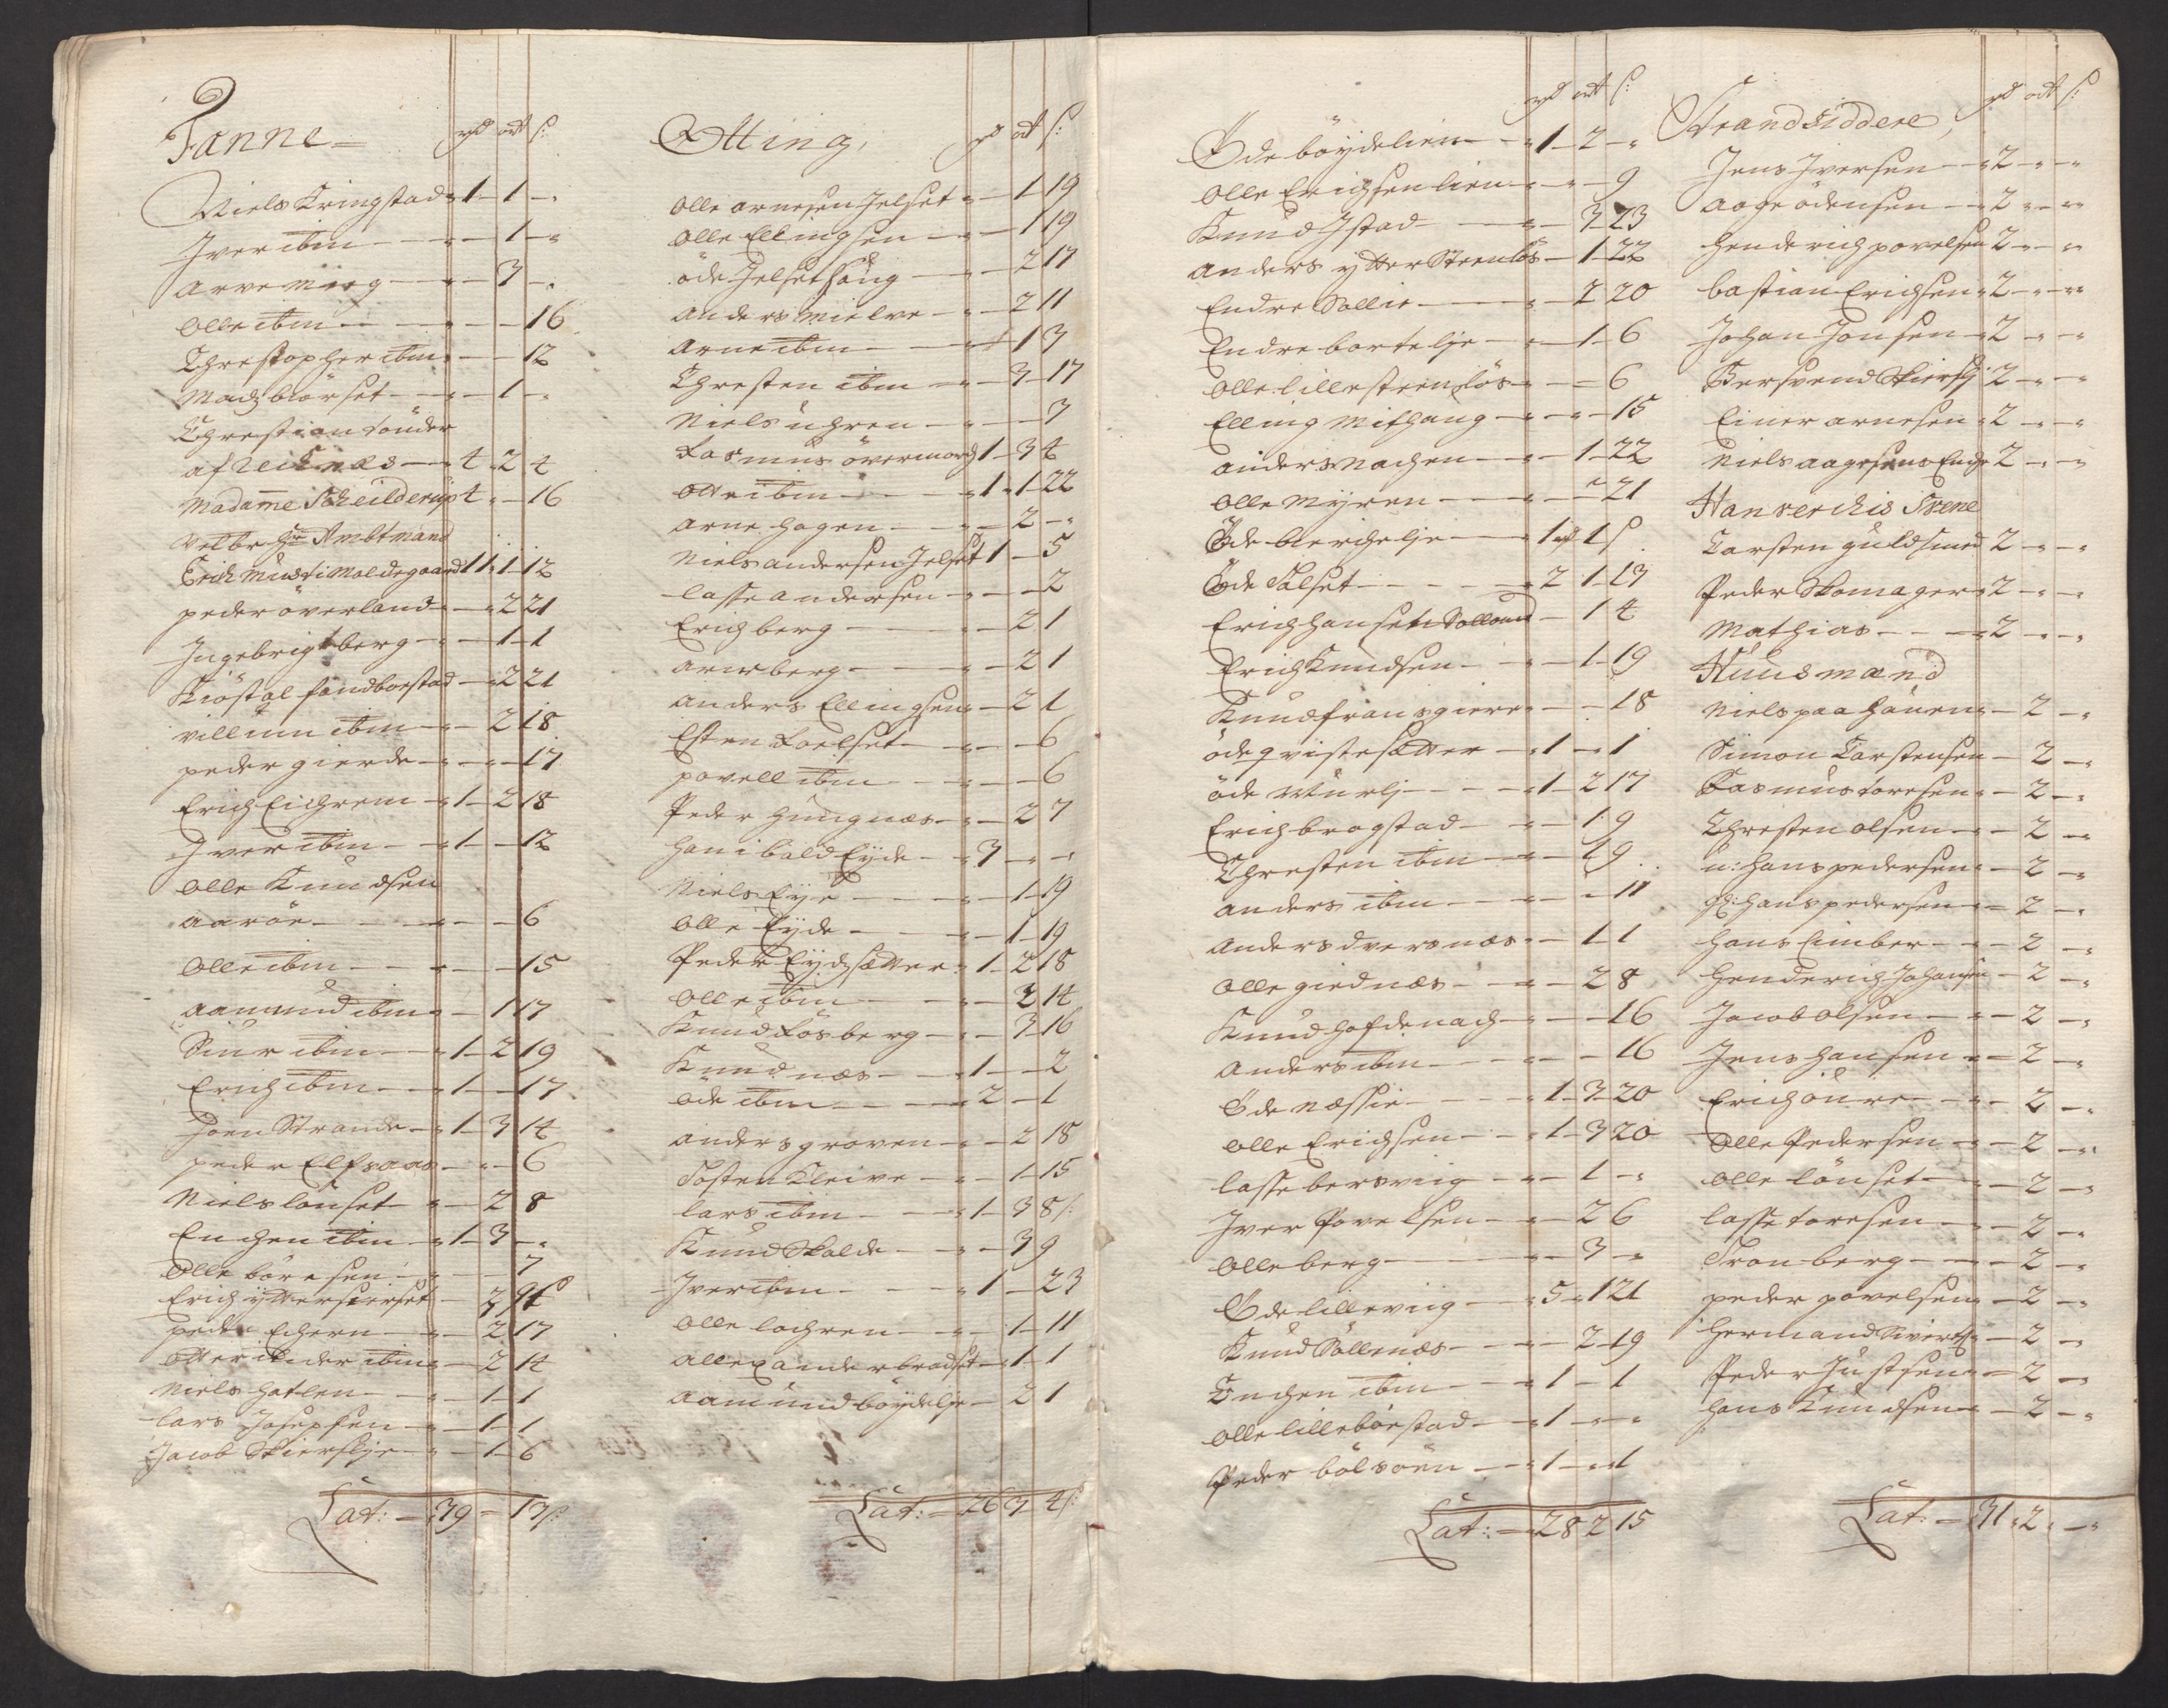 Fanne rd ort s:
Niels Kringstad " 1 - 1 - "
Jver ibm " - 1 - "
Arve Miig " - 3 - "
Olle ibm " - - 16
Chrestopher ibm " - - 12
Madz biörset " - 1 - "
Chrestian tönder
af Recknæs - 4 - 2 4
Madame Scheilderup 4 - 16
Velbr Hr Ambtmand
Erich Must i Moldegaard 11 1 12
peder överland - " 2 21
Jngebrigt berg - " - 1 - 1
Kiöstal sandborstad - " 2 21
villum ibm - " - 2 18
peder gierde - " - " - 17
Erich Eichrem - " 1 - 2 18
Jver ibm - " 1 - - 12
Olle Knudsen
aaröe - " - - 6
Olle ibm - " - - 15
Aamund ibm " - 1 17
Siur ibm - " 1 - 2 19
Erich ibm - " 1 - - 17
Joen Strande - " 1 - 3 14
peder Elfsaas - " - 6
Niels lönset - " - 2 8
Enchen ibm - " 1 - 3 - "
Olle böresen - " - - 7
Erich ytterpierset -
peder Echern - " - 2 17
ibm " - 2 14
Niels hatlen - " - 1 - 1
lars Josepsen - " - 1 - 1
Jacob Skierskje - " - 1 - 6
Lat: - 39 - 13 s:
Otting, rd ort s:
Olle arnesen Jelset " - 1 - 19
Olle Ellingsen - " - 1 19
öde Jelsethoug - " - 2 17
Anders Mielve - " - 2 11
Arne ibm - " - 1 3
Chresten ibm - " - 3 - 17
Niels uhren - " - - 3
Rasmus övermorch 1 - 3 4
Otte ibm - " 1 - 1 22
Arne hagen - " - 2 - "
Niels andersen Jelset 1 - 5
lasse andersen - " - - 2
Erich berg - " - 2 1
Arne berg - " - 2 1
Anders Ellingsen " - 2 1
Esten Roelset - " - - 6
povell ibm - " - - 6
Peder hungnæs - " - 2 7
hanibald Eyde - " 3 - " - "
Niels Eye - " - 1 - 19
Olle Eyde - " - 1 - 19
Peder Eydsetter - " 1 - 2 18
Olle ibm - " - 2 14
Knud Rösberg - " - 3 16
Knud næs - " 1 - - 2
Ode ibm - " 2 - 1
Anders groven - " - 2 18
Tosten Kleive - " - 1 - 15
lars ibm - " 1 - 3 8 s:
Knud Skalde - " - 3 9
Jver ibm - " 1 - 23
Olle lochren - " - 1 - 11
Allexander bradset - " 1 - 1
Aamund böydelje - 2 1
Lat: - 26 3 4 s:
rd ort s:
Öde böydelien - " 1 - 2 - "
Olle Erichsen lien - " - " - 9
Knud Jstad - " - 3 - 23
Anders ytter Steenlös - 1 - 22
Endre Sollie - " - 2 20
Endre bortelje - " - 1 - 6
Olle lille steenlös - " - = 6
Elling Mithaug - " - " - 15
Anders Nachen - " - 1 - 22
Olle Myren - " - " 21
Öde bierchelje - " 1 - 1 s
Öde Solset - - - " 2 1 - 13
Erich hansen Solland - 1 4
Erich Knudsen - " - 1 - 19
Knud fransgiere " - - 18
öde qvistesetter - " 1 - " 1
öde - " 1 - 2 17
Erich brogstad - " - 1 9
Chresten ibm - " - 1 9
Anders ibm - " - - 11
Anders dversnæs " - 1 - 1
Olle giednæs - " - 2 8
Knud hofdenach - " - - 16
Anders ibm - " - - 16
Öde Næssie - " 1 - 3 - 20
Olle Erichsen - " 1 - 3 20
lasse bersviig - " - 1 - "
Jver Povelsen - " - 2 6
Olle berg - " - 3 - "
Öde lilleviig - " 5 - 1 21
Knud Söllenæs - " - 2 - 19
Enchen ibm - " 1 - 1
Olle lillebörstad - " 1 - " - "
Peder bölsöen - " 1 - " 1
Lat: - " 28 2 15
Strandsiddere, rd ort s:
Jens Jversen - " 2 - " - "
Aage ödensen - " 2 - " - "
henderich povelsen 2 - " - "
bastian Erichsen " 2 - " - "
Johan Jonsen - " 2 - " - "
Bersvend Skiersj " 2 - " - "
Einer arnesen " 2 - " - "
Niels aagesens Enche 2 - " - "
Hanverchis Svene
Carsten guldsmed 2 - " - "
Peder Skomager " 2 - " - "
Mathias - - " 2 - " - "
Huusmænd
Niels paa hauen " - 2 - "
Simon Carstensen - 2 - "
Rasmus toresen " - 2 - "
Chresten olsen " - 2 - "
u: hans pedersen " - 2 - "
gl: hans pedersen " - 2 - "
hans Cimber - " - 2 - "
henderich Johansen - 2 - "
Jacob olsen - " - 2 - "
Jens hansen " - 2 - "
Erich öure - " - 2 - "
Olle Pedersen - " - 2 - "
Olle lönset - " - 2 - "
lasse toresen - " - 2 - "
Tron berg - " - 2 - "
peder povelsen " - 2 - "
hermand Sivertz " - 2 - "
Peder Justsen " - 2 - "
hans Knudsen " - 2 - "
Lat: - 31 " 2 " - "